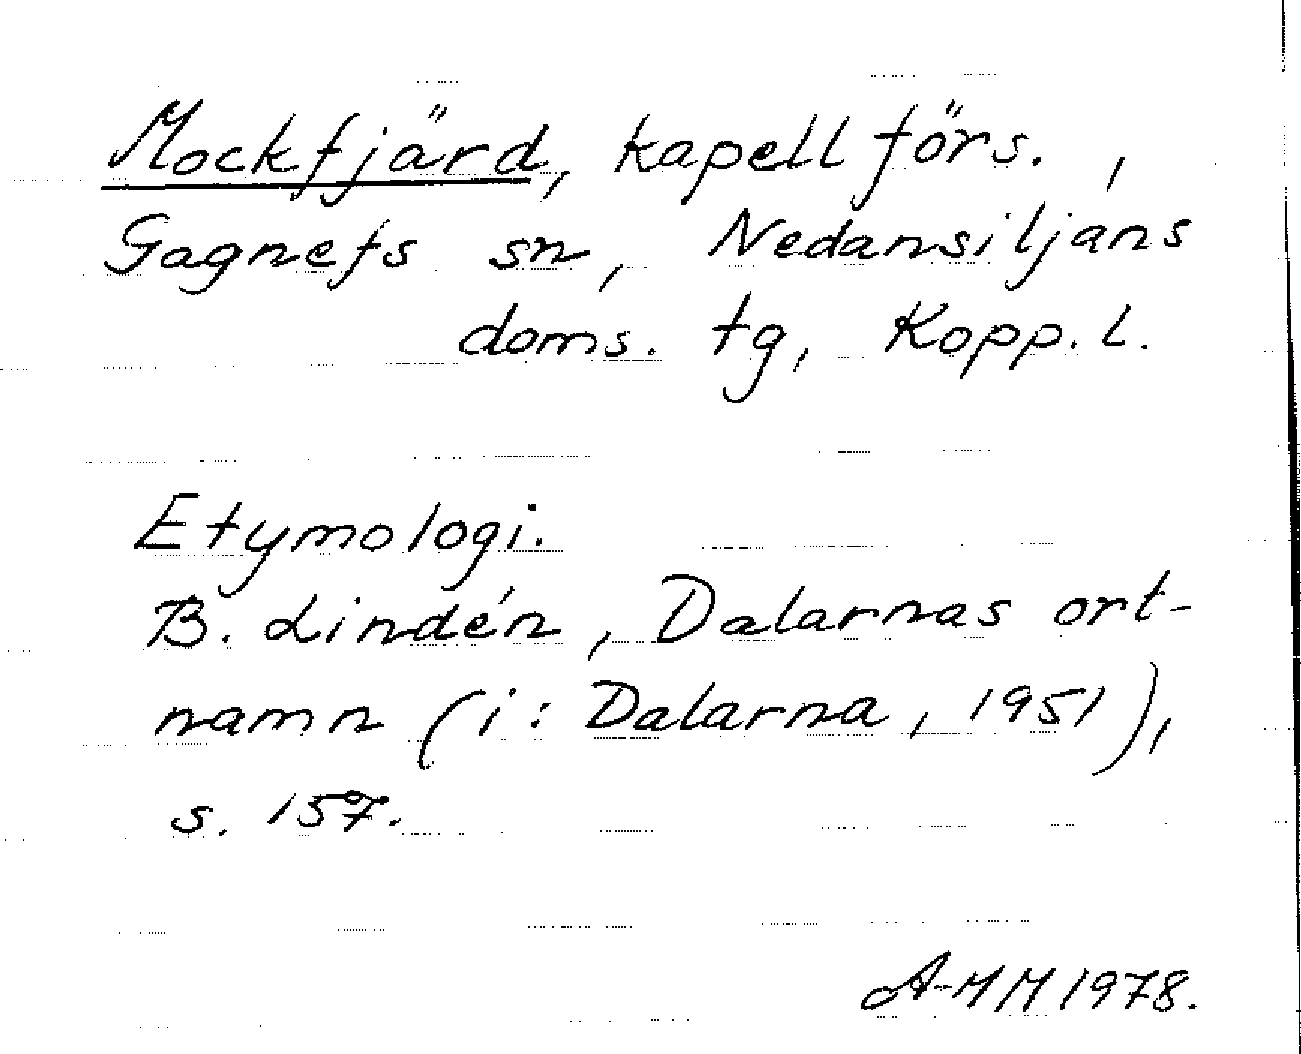 Mockfjärd, kapellförs. ,
Gagnefs sn, Nedansiljans
doms. tg, Kopp. l.
Etymologi.
B. Lindén, Dalarnas ort-
namn (i: Dalarna, 1951),
s. 157.
A-MM 1978.